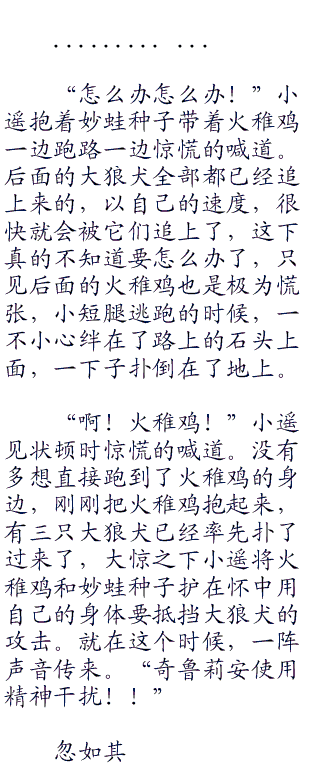 ......... ...
“怎么办怎么办！”小
遥抱着妙蛙种子带着火稚鸡
一边跑路一边惊慌的喊道。
后面的大狼犬全部都已经追
上来的，以自己的速度，很
快就会被它们追上了，这下
真的不知道要怎么办了，只
见后面的火稚鸡也是极为慌
张，小短腿逃跑的时候，一
不小心绊在了路上的石头上
面，一下子扑倒在了地上。
“啊！火稚鸡！”小遥
见状顿时惊慌的喊道。没有
多想直接跑到了火稚鸡的身
边，刚刚把火稚鸡抱起来，
有三只大狼犬已经率先扑了
过来了，大惊之下小遥将火
稚鸡和妙蛙种子护在怀中用
自己的身体要抵挡大狼犬的
攻击。就在这个时候，一阵
声音传来。“奇鲁莉安使用
精神干扰！！”
忽如其